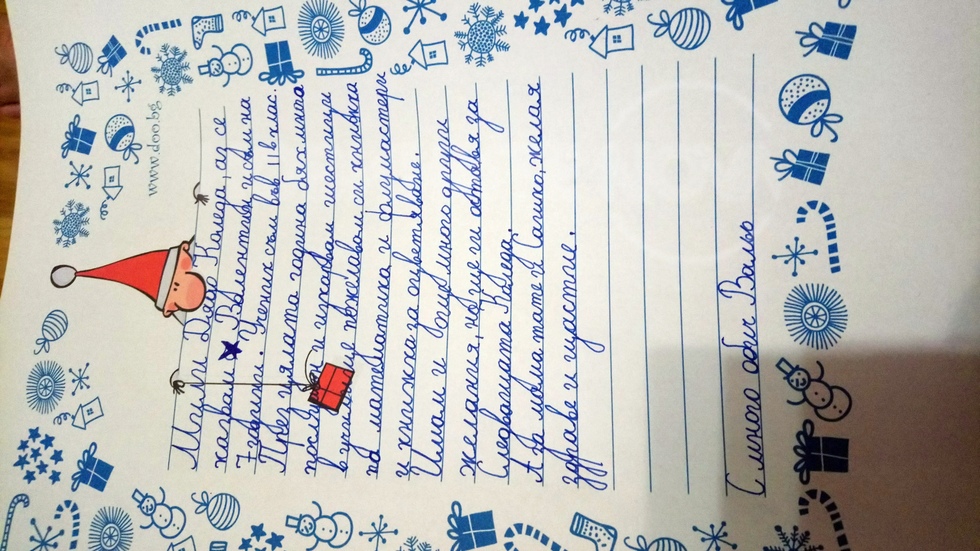 www.doo.bg
Мили Дядо Коледа, аз се
казвам Валентин и съм на
7 години. Ученик съм във II в клас.
През цялата година бях много
послушен и изкарвам шестици
в училище пожелавам си книжка
по математика и флумастери
и книжка за оцветяване.
Имам и още много други
желания, но ще ги оставя за
Следващата Коледа.
А за мама тате и Сашко, желая
здраве и щастие.
С много обич Вальо